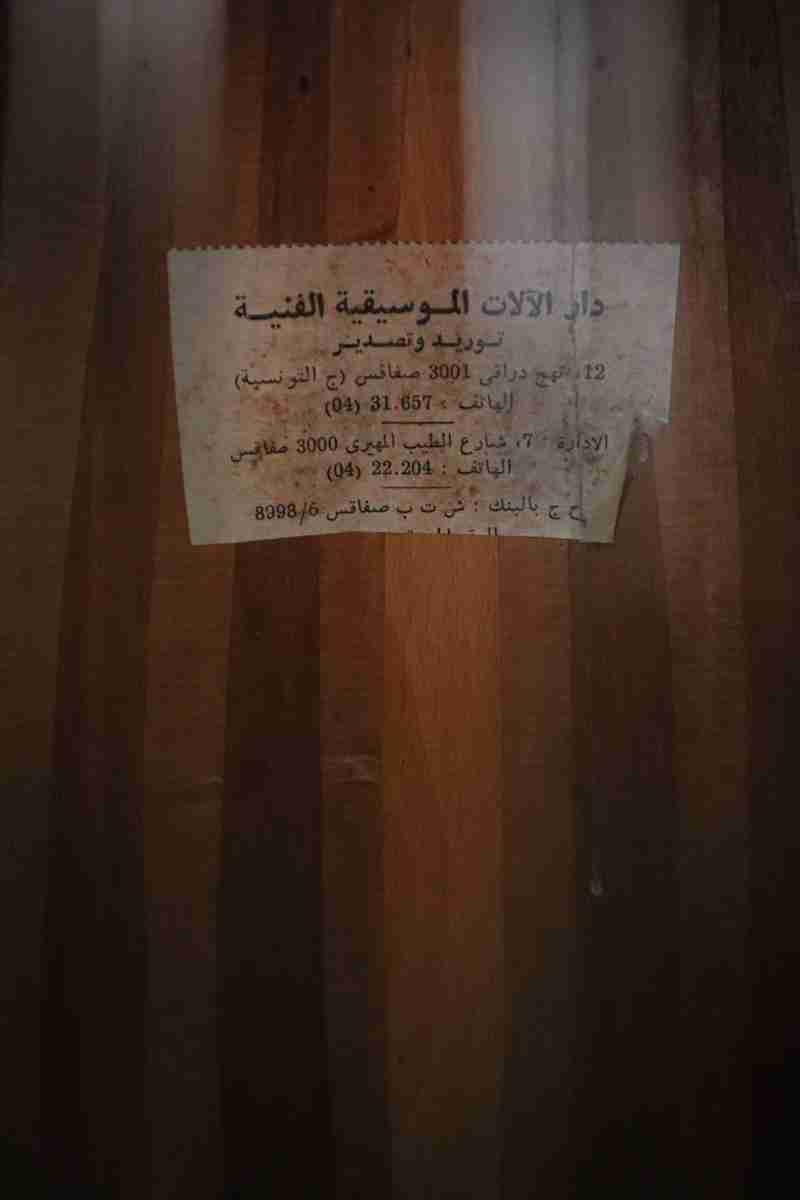 دار الآلات الموسيقية الفنية
توريد وتصدير
12، نهج دراقى 3001 صفاقس (ج التونسية)
الهاتف : 31.657 (04)
الادارة : 7، شارع الطيب المهيرى 3000 صفاقس
الهاتف : 22.204 (04)
ح ج بالبنك : ش ت ب صفاقس 8998/6